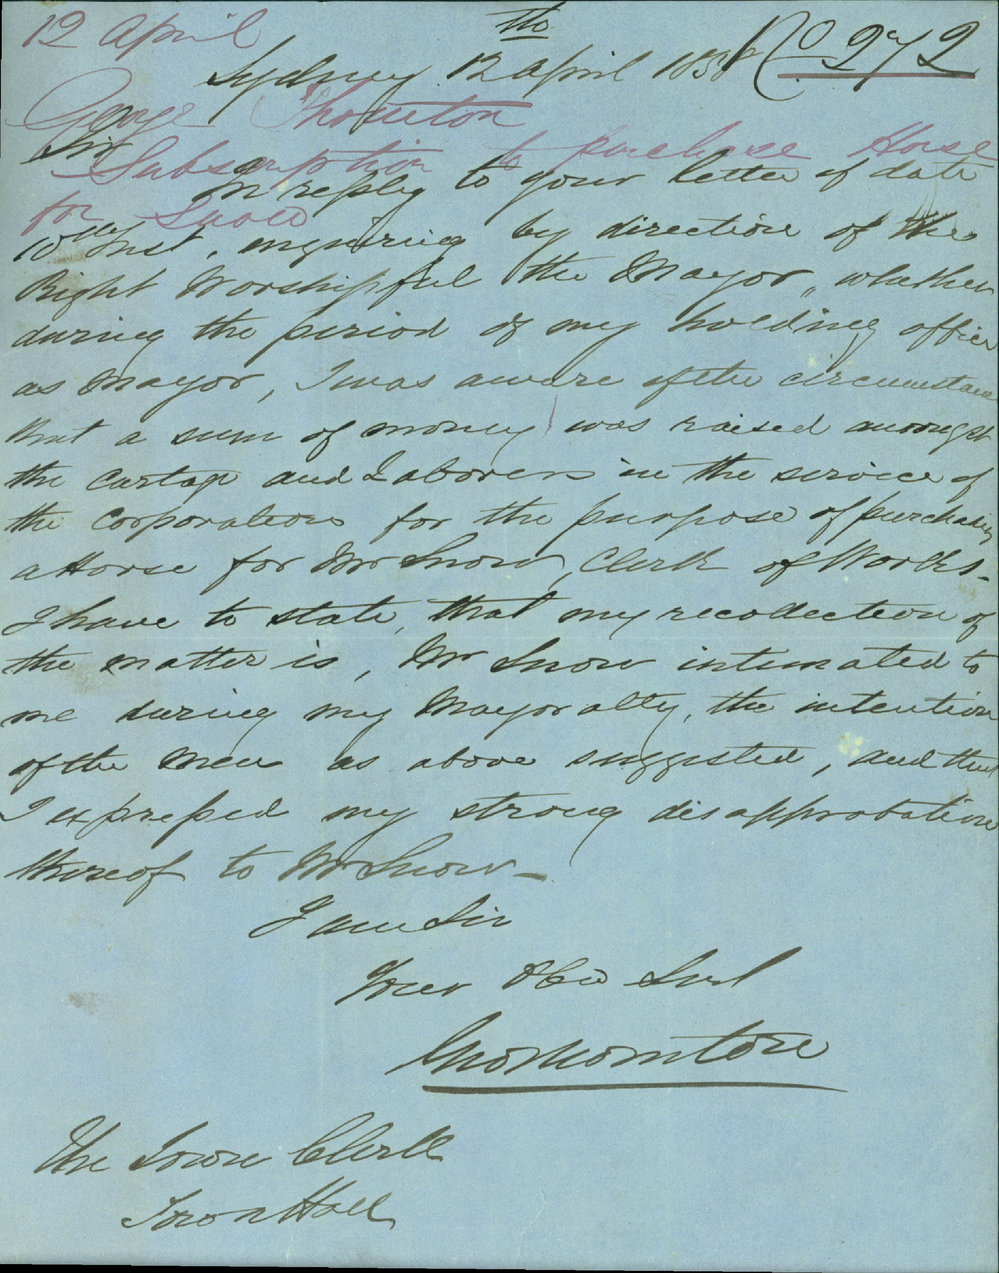 12 April
No 272
Sydney 12th April 1858
George Thornton
Subscription to purchase Horse
for Snow
Sir
In reply to your letter of date
10th Inst, enquiring by direction of the
Right Worshipful the Mayor, whether
during the period of my holding office
as Mayor, I was aware of the circumstance
that a sum of money was raised amongst
the and Laborers in the service of
the Corporation for the purpose of purchasing
a Horse for Mr Snow, Clerk of Works.
I have to state, that my recollection of
the matter is, Mr Snow intimated to
me during my Mayoralty, the intention
of the men as above suggested, and that
I expressed my strong disapprobation
thereof to Mr Snow—
I am Sir
Your Obt Svt
Geo Thornton
The Town Clerk
Town Hall